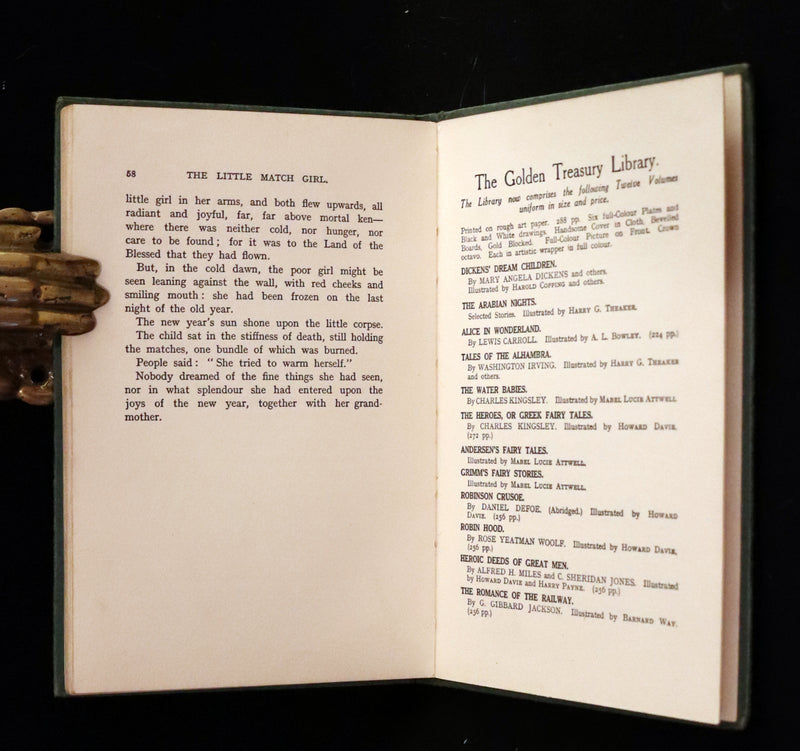 58
THE LITTLE MATCH GIRL.
little girl in her arms, and both flew upwards, all
radiant and joyful, far, far above mortal ken—
where there was neither cold, nor hunger, nor
care to be found; for it was to the Land of the
Blessed that they had flown.
But, in the cold dawn, the poor girl might be
seen leaning against the wall, with red cheeks and
smiling mouth: she had been frozen on the last
night of the old year.
The new year's sun shone upon the little corpse.
The child sat in the stiffness of death, still holding
the matches, one bundle of which was burned.
People said: "She tried to warm herself."
Nobody dreamed of the fine things she had seen,
nor in what splendour she had entered upon the
joys of the new year, together with her grand-
mother.
The Golden Treasury Library.
The Library now comprises the following Twelve Volumes
uniform in size and price.
Printed on rough art paper. 288 pp. Six full-Colour Plates and
Black and White drawings. Handsome Cover in Cloth, Bevelled
Boards, Gold Blocked. Full-Colour Picture on Front. Crown
octavo. Each in artistic wrapper in full colour.
DICKENS' DREAM CHILDREN.
By MARY ANGELA DICKENS and others.
Illustrated by HAROLD COPPING and others.
THE ARABIAN NIGHTS.
Selected Stories. Illustrated by HARRY G. THEAKER.
ALICE IN WONDERLAND.
By LEWIS CARROLL. Illustrated by A. L. BOWLEY. (224 pp.)
TALES OF THE ALHAMBRA.
By WASHINGTON IRVING. Illustrated by HARRY G. THEAKER
and others.
THE WATER BABIES.
By CHARLES KINGSLEY. Illustrated by MABEL LUCIE ATTWELL
THE HEROES, OR GREEK FAIRY TALES.
By CHARLES KINGSLEY. Illustrated by HOWARD DAVIE.
(272 pp.)
ANDERSEN'S FAIRY TALES.
Illustrated by MABEL LUCIE ATTWELL.
GRIMM'S FAIRY STORIES.
Illustrated by MABEL LUCIE ATTWELL.
ROBINSON CRUSOE.
By DANIEL DEFOE. (Abridged.) Illustrated by HOWARD
DAVIE. (256 pp.)
ROBIN HOOD.
By ROSE YEATMAN WOOLF. Illustrated by HOWARD DAVIE.
(256 pp.)
HEROIC DEEDS OF GREAT MEN.
By ALFRED H. MILES and C. SHERIDAN JONES. Illustrated
by HOWARD DAVIE and HARRY PAYNE. (256 pp.)
THE ROMANCE OF THE RAILWAY.
By G. GIBBARD JACKSON. Illustrated by BARNARD WAY.
(256 pp.)